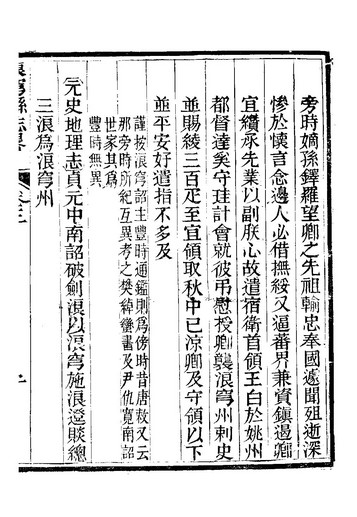 旁時嫡孫鐸羅望卿之先祖輸忠奉國遽聞殂逝深
慘於懷言念邊人必借撫綏又逼蕃界兼資鎮遏卿
宜纘承先業以副朕心故遣宿衛首領王白於姚州
都督達奚守珪計會就彼弔慰授卿襲浪穹州刺史
並賜綾三百疋至宜領取秋中已涼卿及守領以下
並平安好遣指不多及
謹按浪穹詔主豐時通鑑則為傍時昔唐故又云
那旁時所紀互異考之樊綽蠻書及尹仇寬南詔
世家其為
豐時無異
元史地理志貞元中南詔破劍浪以浪穹施浪邆賧總
三浪為浪穹州
浪穹縣志畧
卷之